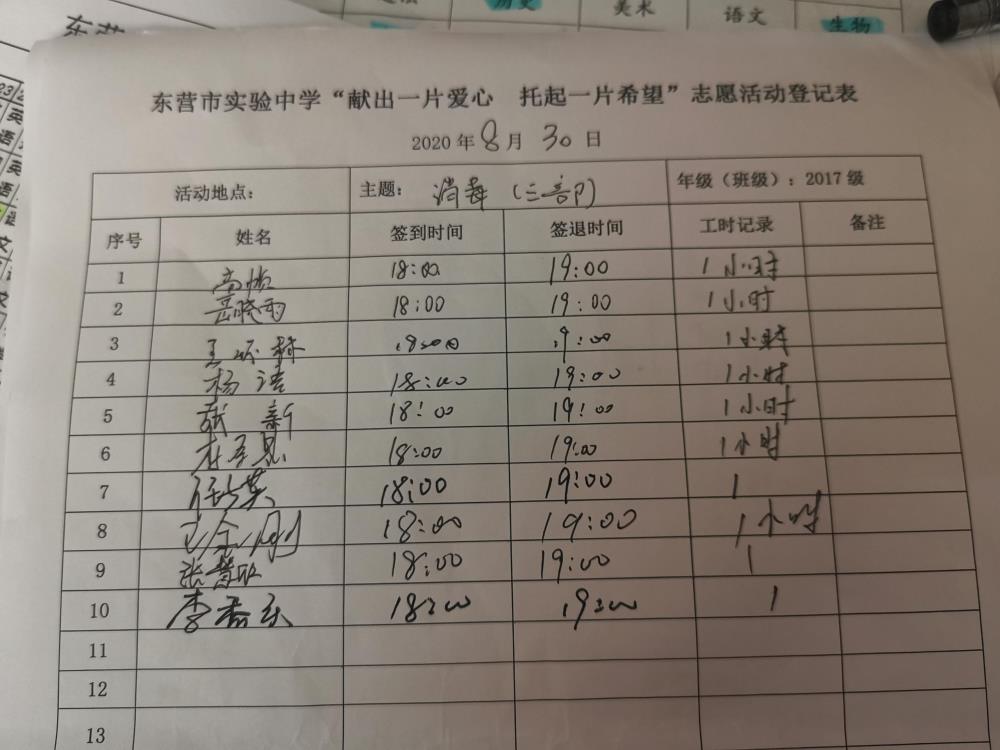 历史
美术
语文
生物
东营
东营市实验中学“献出一片爱心 托起一片希望”志愿活动登记表
2020年8月30日
活动地点： 主题：消毒（三部） 年级（班级）：2017级
序号 姓名 签到时间 签退时间 工时记录 备注
1 18:00 19:00 1小时
2 岳晓雨 18:00 19:00 1小时
3 18:00 19:00 1小时
4 杨洁 18:00 19:00 1小时
5 新 18:00 19:00 1小时
6 18:00 19:00 1小时
7 18:00 19:00 1
8 18:00 19:00 1小时
9 张 18:00 19:00 1
10 李 18:00 19:00 1
11
12
13